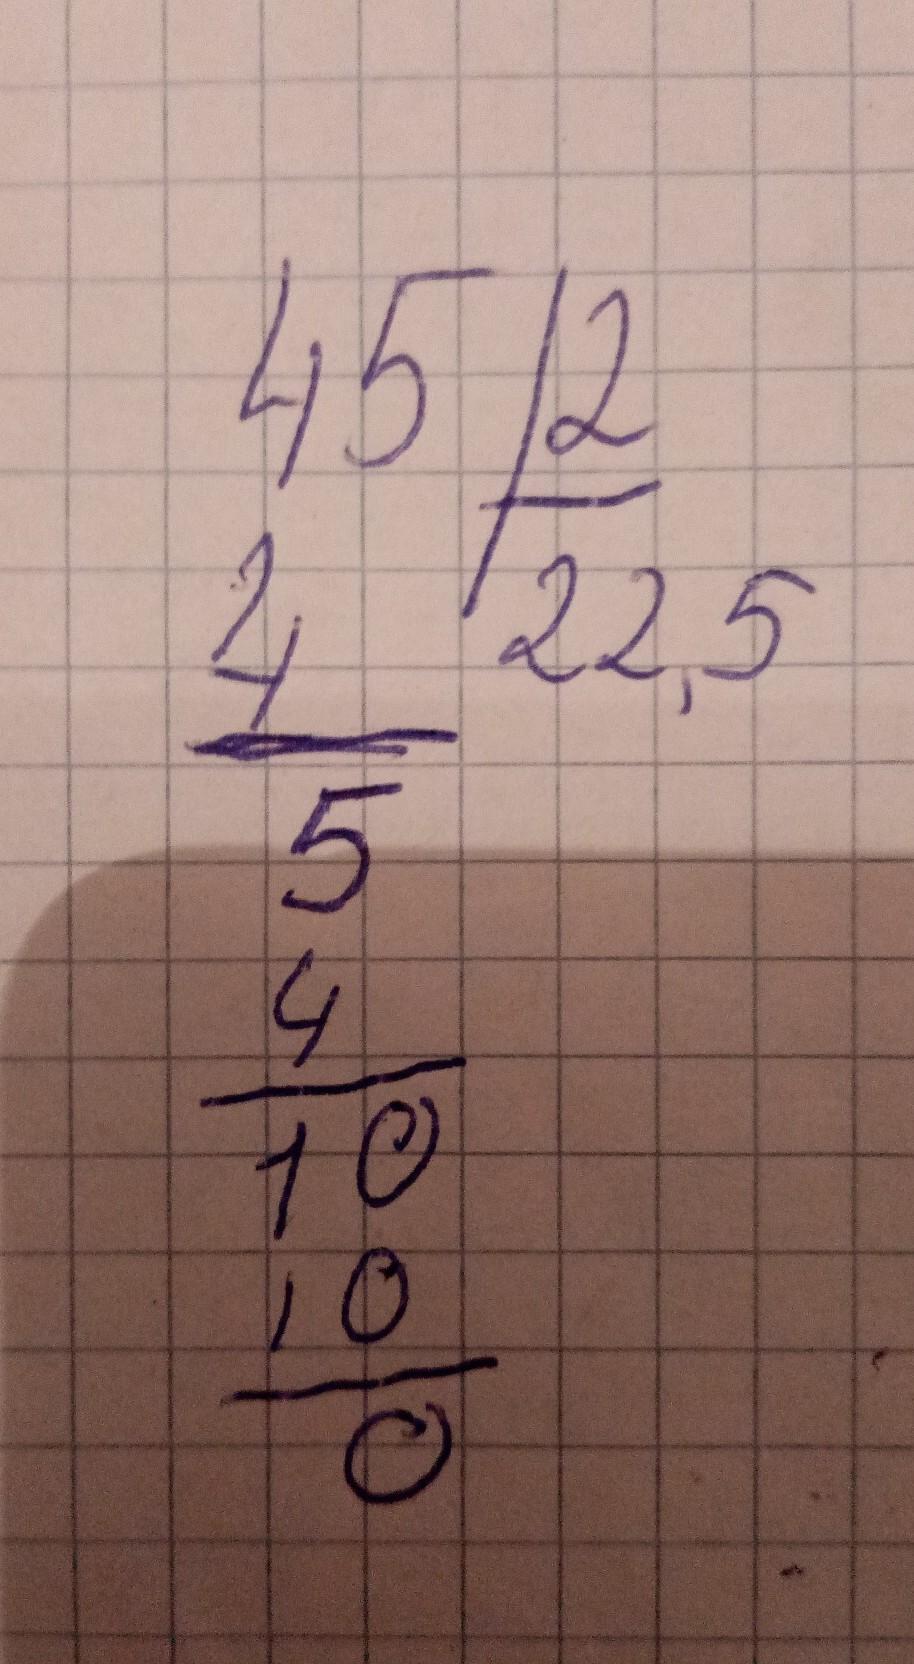 45 2
4 22,5
5
4
10
10
0